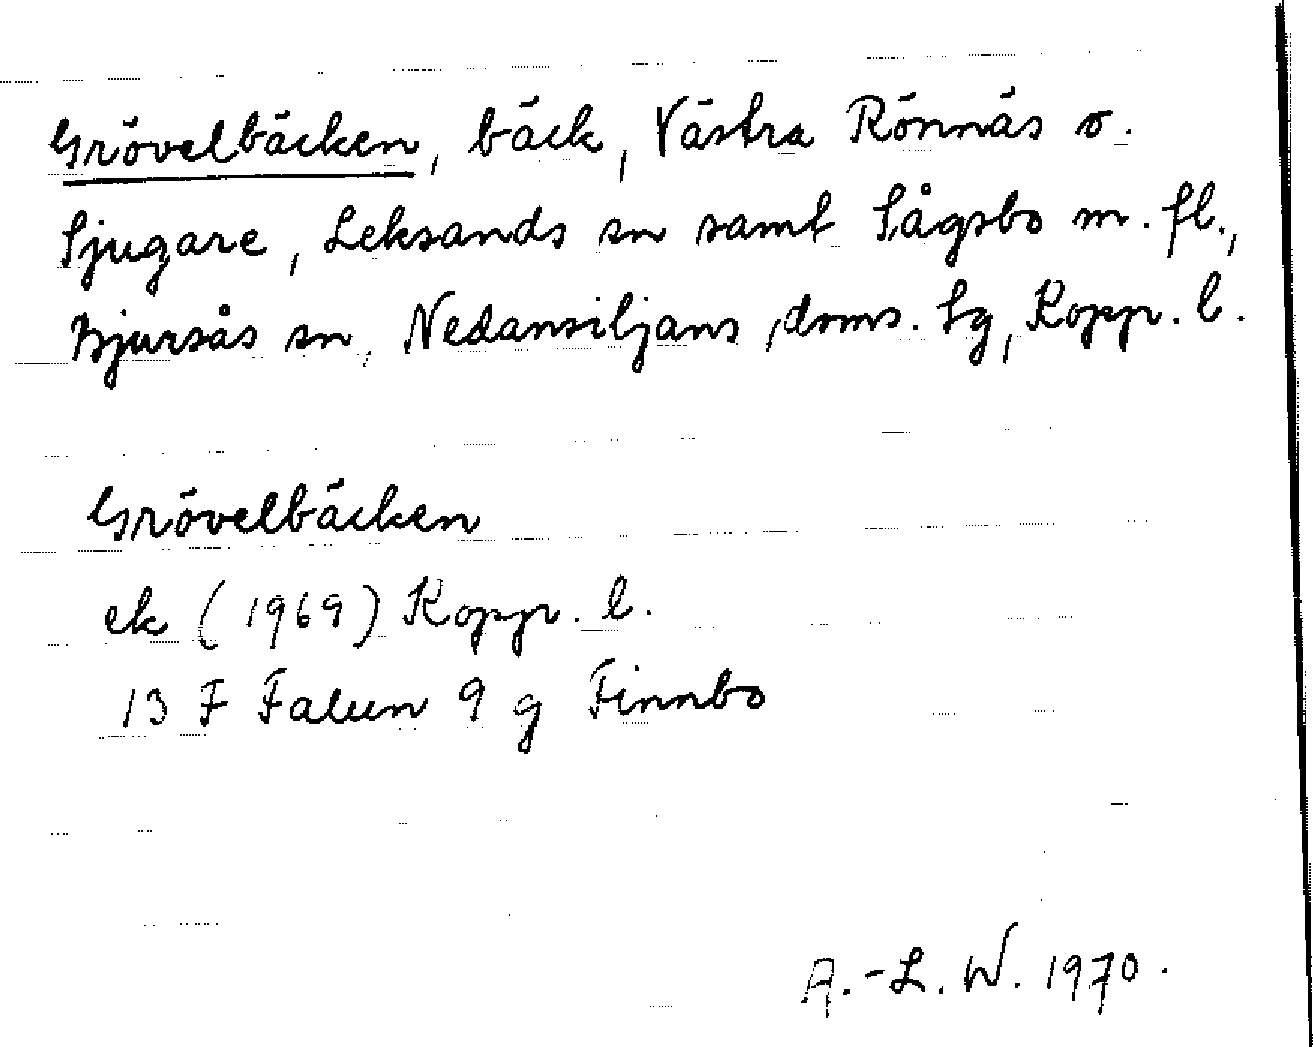 Grövelbäcken, bäck, Västra Rönnäs o.
Sjugare, Leksands sn samt Sågsbo m. fl.,
Bjursås sn, Nedansiljans, doms. lg, Kopp. l.
Grövelbäcken
ek (1969) Kopp. l.
13 F Falun 9 g Finnbo
A.-L. W. 1970.